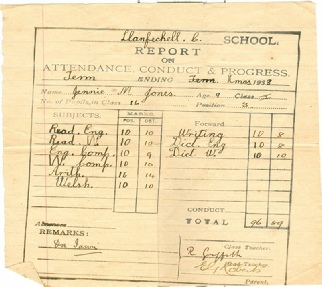 Llanfechell. C. SCHOOL.
REPORT
ON
ATTENDANCE, CONDUCT & PROGRESS.
Term ENDING Term Xmas 1928
Name Jennie M. Jones Age 9 Class I
No. of Pupils in Class 16 Position 3
SUBJECTS. MARKS.
POS. OBT.
Forward
Read. Eng. 10 10
Read. W. 10 10
Eng. Comp. 10 9
W. Comp. 10 10
Arith. 16 14
Welsh 10 10
Writing 10 8
Dict. Eng 10 8
Dict. W. 10 10
CONDUCT
TOTAL 96 89
Absences
REMARKS:
Da Iawn
Class Teacher.
R. Griffith
Head Teacher
Parent.